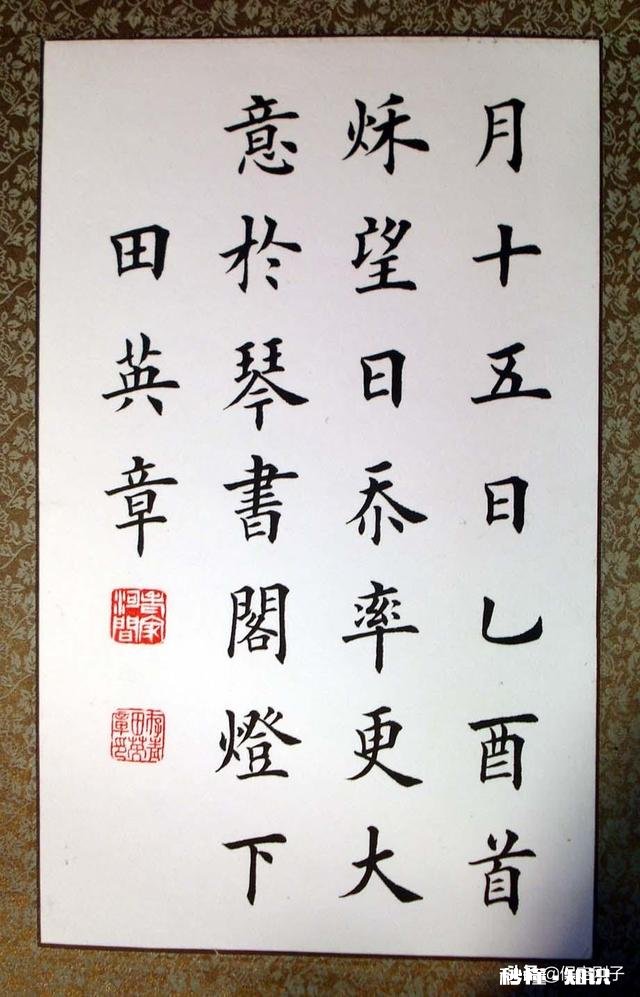 月十五日乙酉首
秌望日忝率更大
意於琴書閣燈下
田英章
秒懂·知识